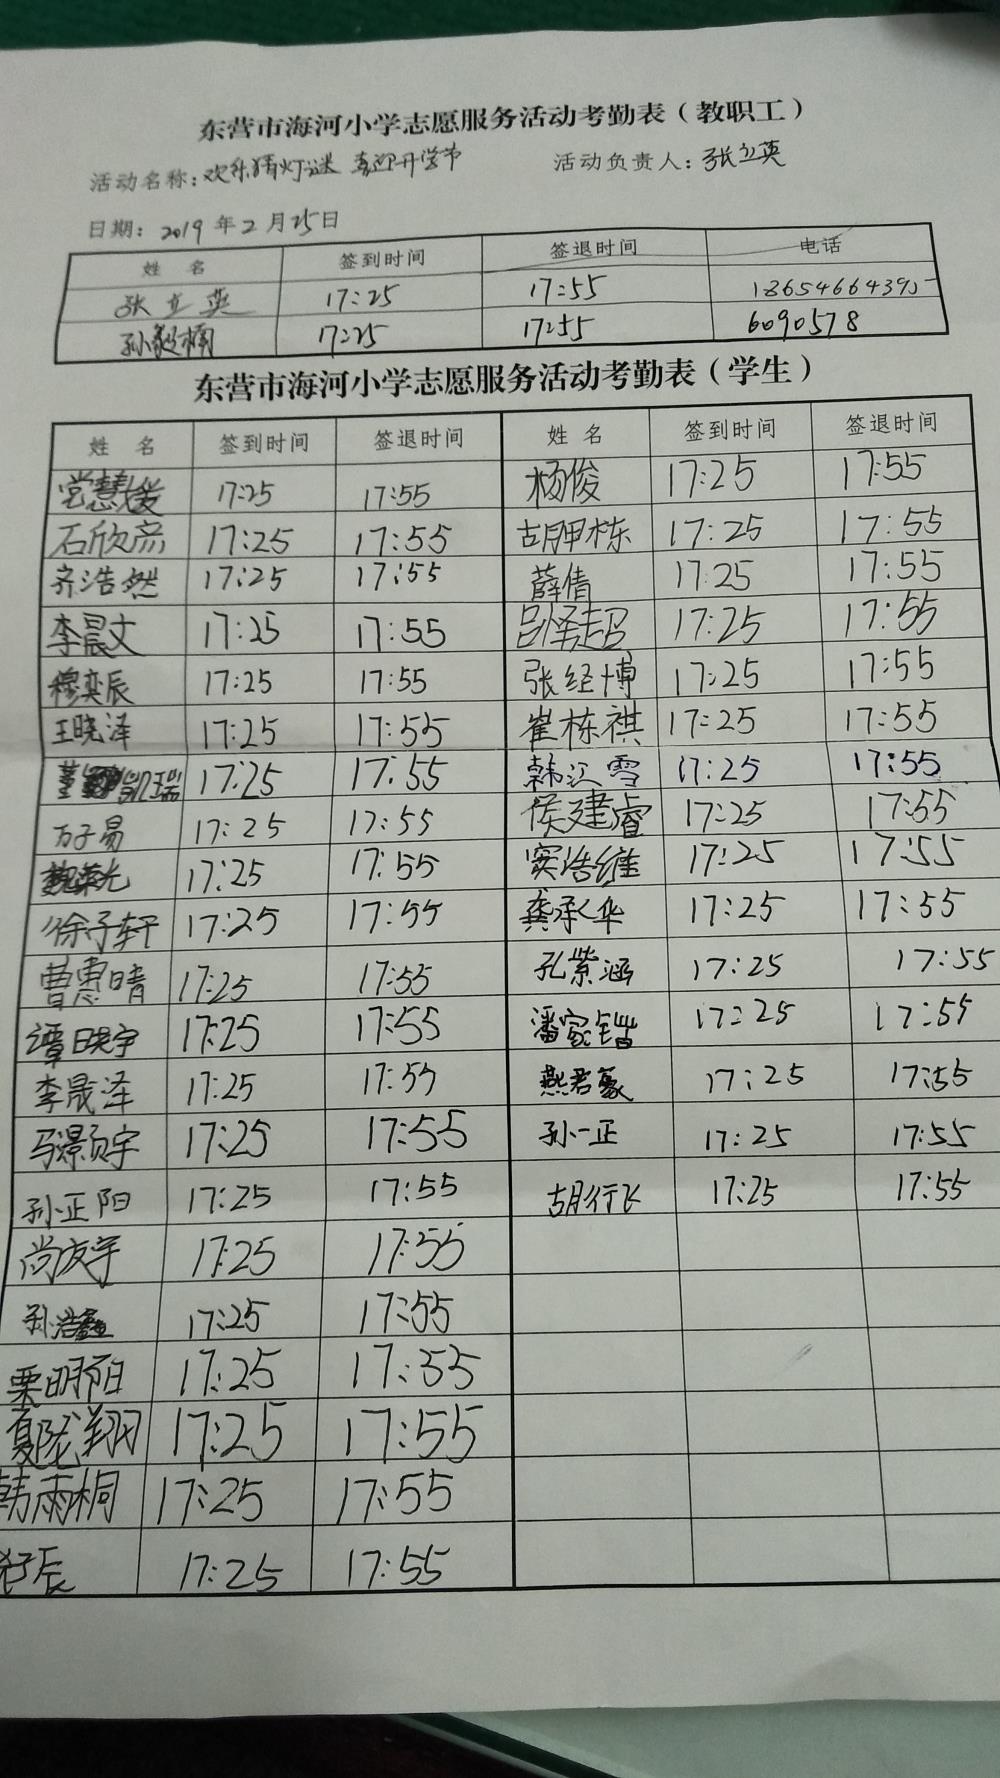 东营市海河小学志愿服务活动考勤表（教职工）
活动名称：欢乐猜灯谜 喜迎开学节 活动负责人：张立英
日期：2019年2月25日
姓 名 签到时间 签退时间 电话
张立英 17:25 17:55 18654664395
孙毅楠 17:25 17:55 6090578
东营市海河小学志愿服务活动考勤表（学生）
姓 名 签到时间 签退时间 姓 名 签到时间 签退时间
常慧媛 17:25 17:55 杨俊 17:25 17:55
石欣彦 17:25 17:55 胡胛栋 17:25 17:55
齐浩然 17:25 17:55 薛倩 17:25 17:55
李晨文 17:25 17:55 吕怿超 17:25 17:55
穆奕辰 17:25 17:55 张经博 17:25 17:55
王晓泽 17:25 17:55 崔栋祺 17:25 17:55
董凯瑞 17:25 17:55 韩江雪 17:25 17:55
万子易 17:25 17:55 侯建睿 17:25 17:55
魏荣光 17:25 17:55 窦浩维 17:25 17:55
徐子轩 17:25 17:55 龚承华 17:25 17:55
曹惠晴 17:25 17:55 孔紫涵 17:25 17:55
谭晓宇 17:25 17:55 潘家锴 17:25 17:55
李晟泽 17:25 17:55 燕君豪 17:25 17:55
马灏宇 17:25 17:55 孙一正 17:25 17:55
孙正阳 17:25 17:55 胡行飞 17:25 17:55
尚友宇 17:25 17:55
孙浩鑫 17:25 17:55
栗明阳 17:25 17:55
夏陇翔 17:25 17:55
韩雨桐 17:25 17:55
辰 17:25 17:55